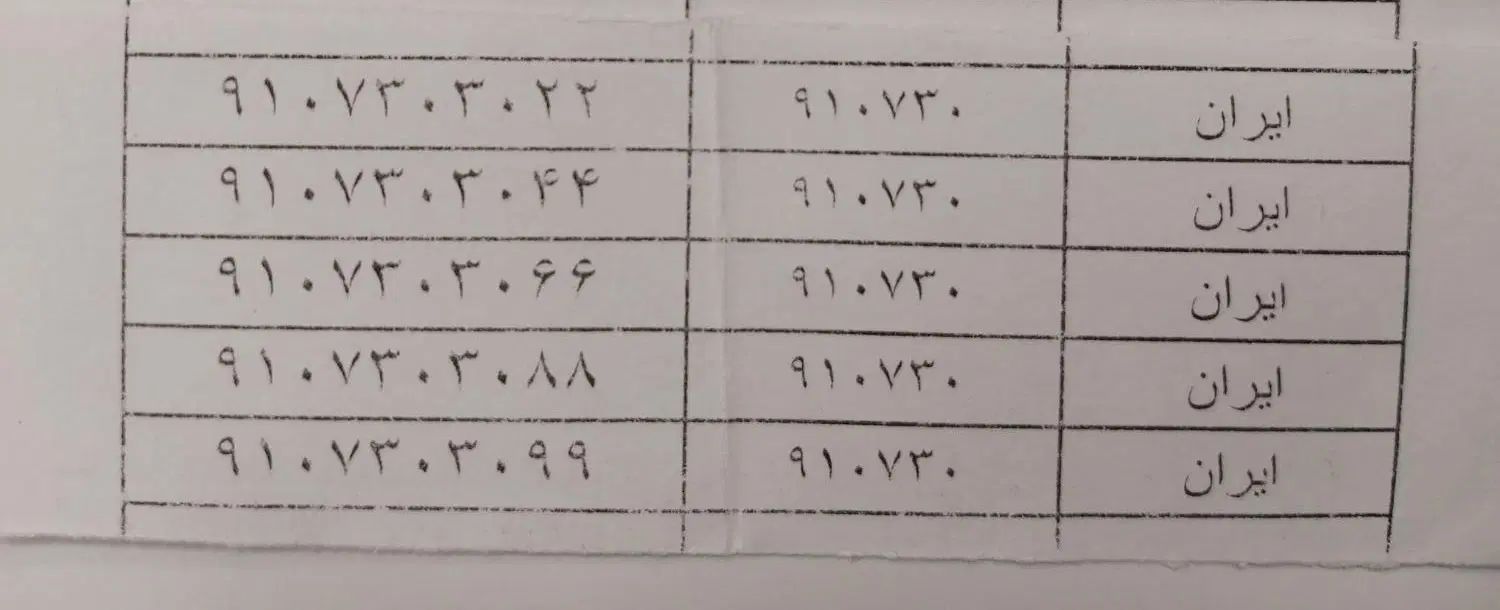 ایران ۹۱۰۷۳۰ ۹۱۰۷۳۰۳۰۲۲
ایران ۹۱۰۷۳۰ ۹۱۰۷۳۰۳۰۴۴
ایران ۹۱۰۷۳۰ ۹۱۰۷۳۰۳۰۶۶
ایران ۹۱۰۷۳۰ ۹۱۰۷۳۰۳۰۸۸
ایران ۹۱۰۷۳۰ ۹۱۰۷۳۰۳۰۹۹